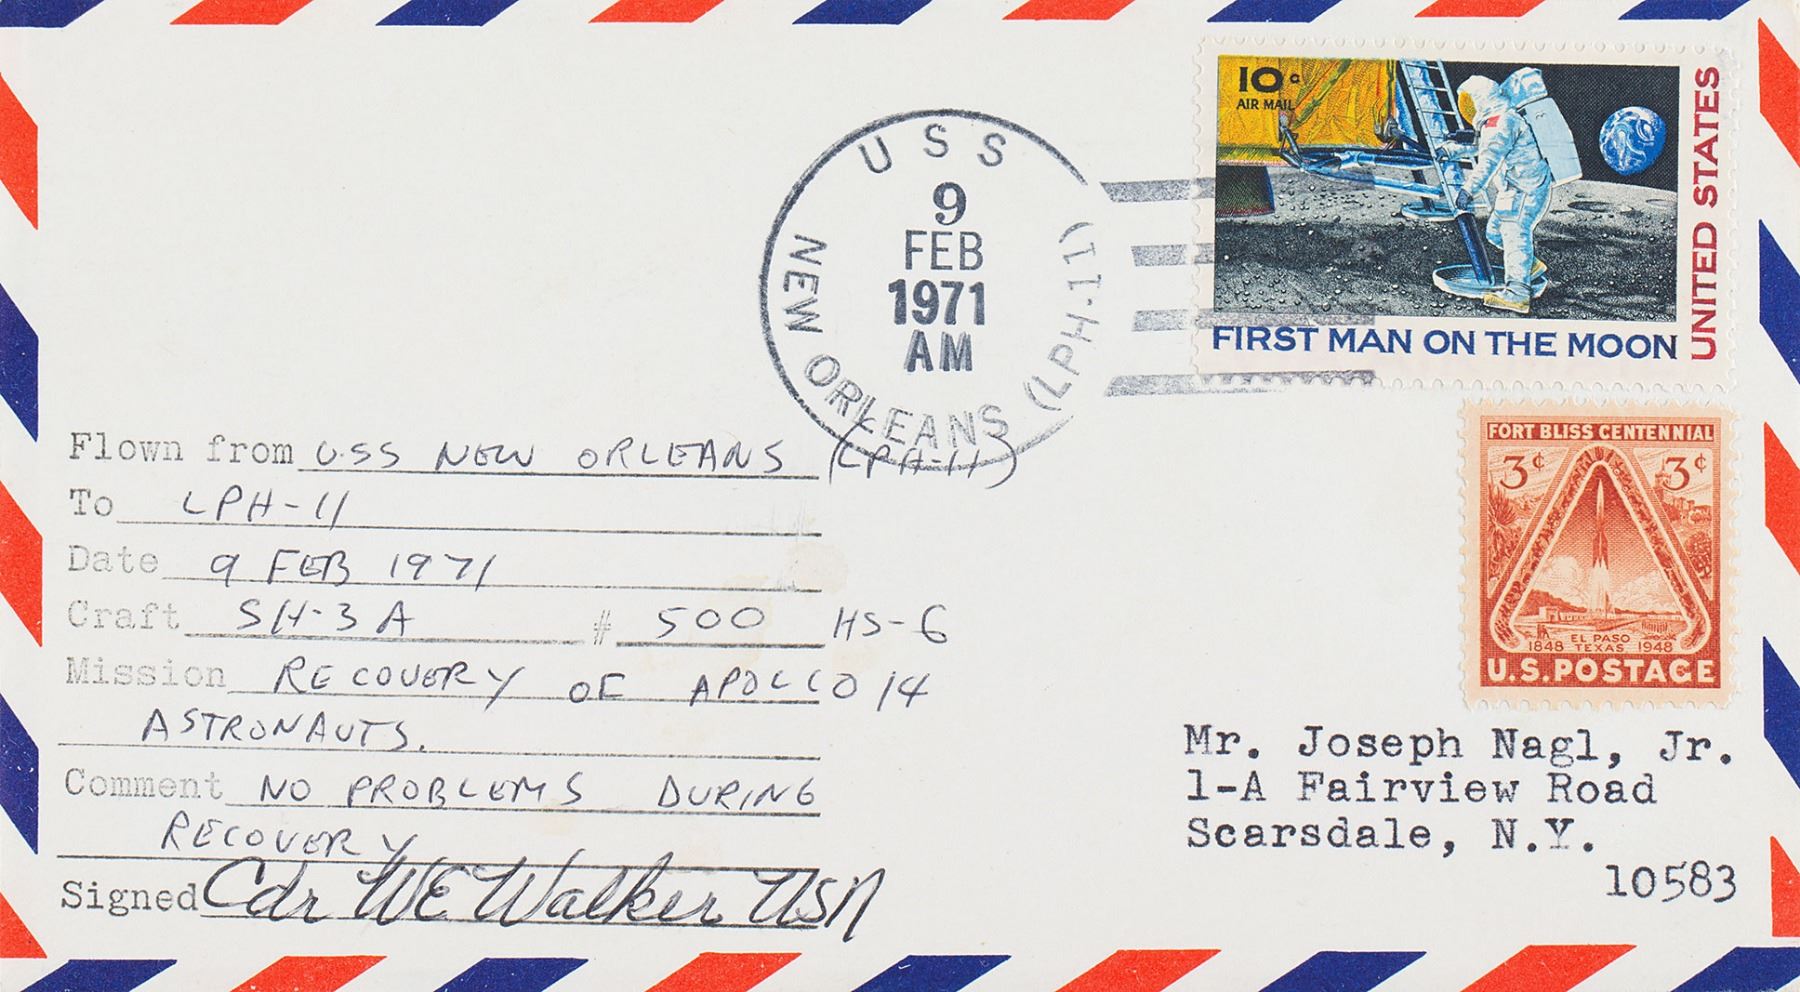 USS NEW ORLEANS (LPH-11)
9
FEB
1971
AM
10c
AIR MAIL
UNITED STATES
FIRST MAN ON THE MOON
FORT BLISS CENTENNIAL
3¢ 3¢
EL PASO
1848 TEXAS 1948
U.S. POSTAGE
Flown from U.S.S NEW ORLEANS (LPH-11)
To LPH-11
Date 9 FEB 1971
Craft SH-3A # 500 HS-6
Mission RECOVERY OF APOLLO 14
ASTRONAUTS.
Comment NO PROBLEMS DURING
RECOVERY
Signed Cdr WE Walker USN
Mr. Joseph Nagl, Jr.
1-A Fairview Road
Scarsdale, N.Y.
10583